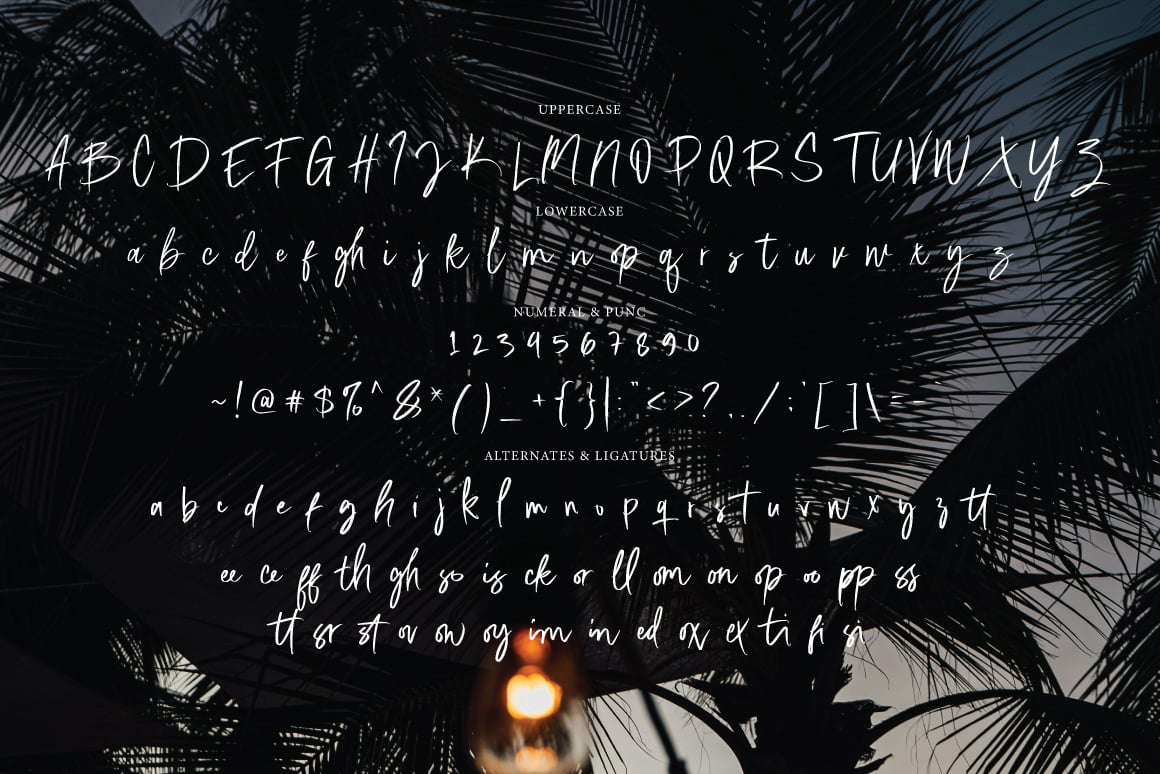 UPPERCASE
A B C D E F G H I J K L M N O P Q R S T U V W X Y Z
LOWERCASE
a b c d e f g h i j k l m n o p q r s t u v w x y z
NUMERAL & PUNC
1 2 3 4 5 6 7 8 9 0
~ ! @ # $ % ^ & * ( ) _ + { } | : " < > ? , . / ; ' [ ] \ = - `
ALTERNATES & LIGATURES
a b c d e f g h i j k l m n o p q r s t u v w x y z tt
ee ce ff th gh so is ck or ll om on op oo pp ss
tl sr st ov ow oy im in ed ox ex ti fi si